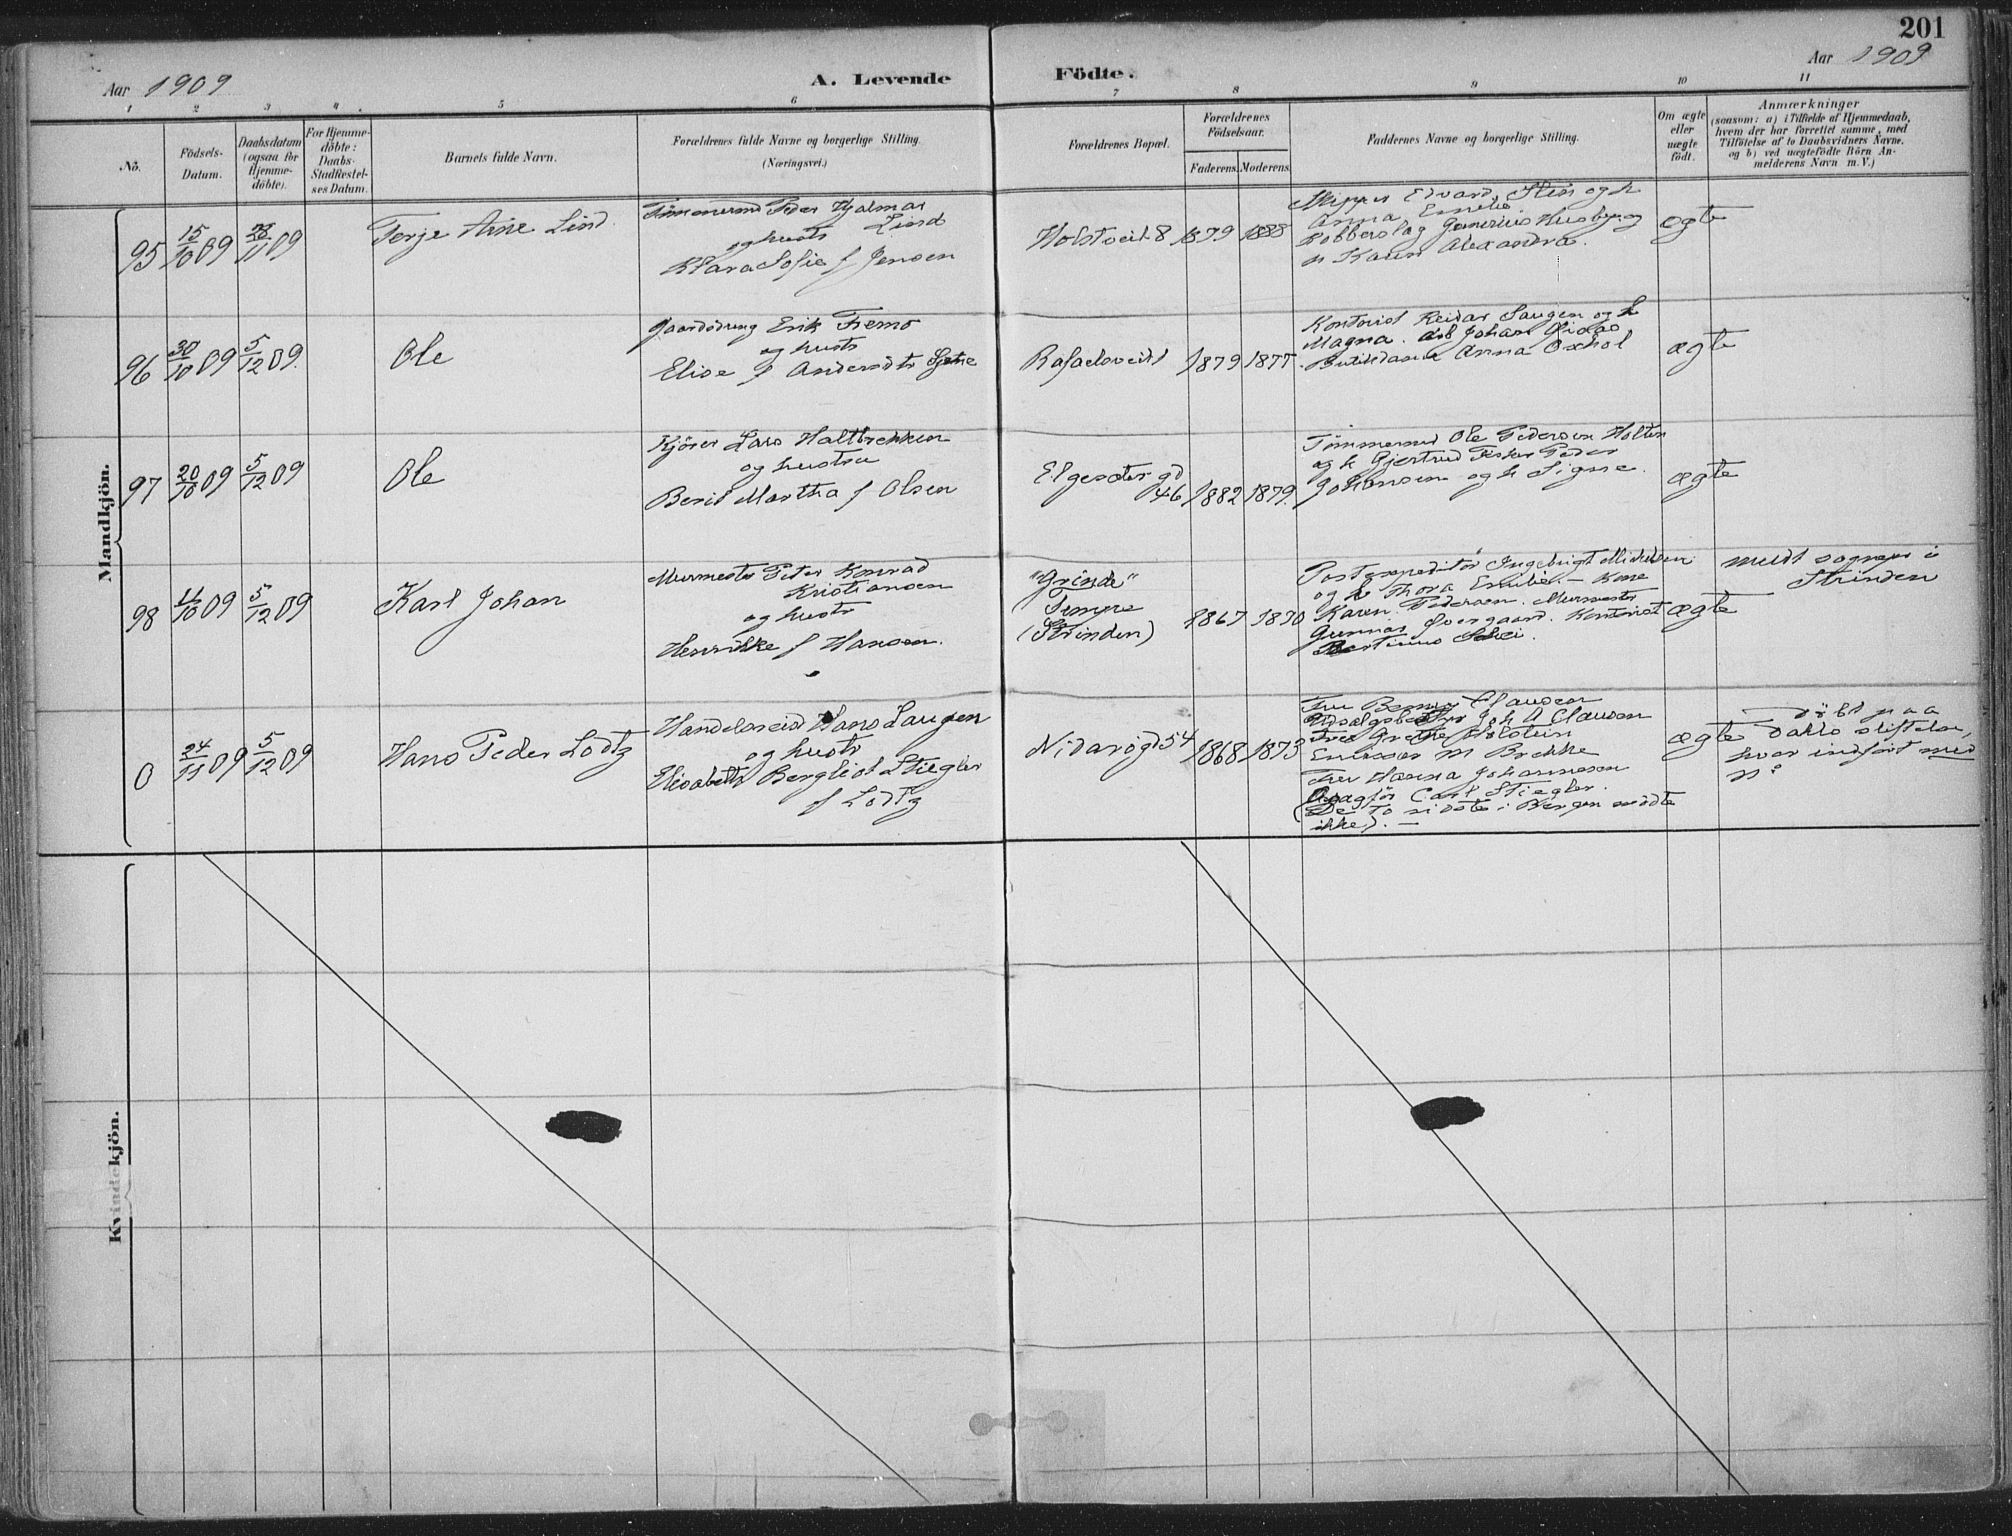 201
Aar 1909
A. Levende Födte.
Aar 1909
1 2 3 4 5 6 7 8 9 10 11
No.
Födsels-Datum.
Daabsdatum (ogsaa for Hjemme-döbte).
For Hjemme-döbte: Daabs-Stadfæstel-ses Datum.
Barnets fulde Navn.
Forældrenes fulde Navne og borgerlige Stilling.
(Næringsvei.)
Forældrenes Bopæl.
Forældrenes Födselsaar.
Faderens. Moderens.
Faddernes Navne og borgerlige Stilling.
Om ægte eller uægte födt.
Anmærkninger
(saasom: a) i Tilfælde af Hjemmedaab,
hvem der har forrettet samme, med
Tilföielse af to Daabsvidners Navne.
og b) ved uægtefödte Börn An-
melderens Navn m. V.)
Mandkjön.
95 15/10 09 28/11 09 Terje Arne Lind
Tömmermd Peder Hjalmar
Lind
og hustr
Klara Sofie f Jensen
Holstveit 8 1879 1888
Skipper Edvard Sten og h
Anna Emilie
Kobberslag Husby og
h Karen Alexandra.
ægte
96 30/10 09 5/12 09. Ole
Gaardsdreng Erik Fremo
og hustr
Elise f Andersdtr
Rafaelsveit 1 1879 1877
Kontorist Reidar Saugen og h
Magna. Johan
Butikdame Anna Oxhol
ægte
97 20/10 09 5/12 09 Ole
Kjörer Lars Haltbrekken
og hustru
Berit Martha f Olsen
Elgesæter gd
46 1882 1879.
Tömmermd Ole Pedersen Holten
og h. Gjertrud Fisker Peder
Johansen og h Signe.
ægte
98 11/10 09 5/12 09 Karl Johan
Murmester Peter Konrad
Kristiansen
og hustr
Henrikke f Hansen.
"Grinda"
Tempe
(Strinden) 1867 1870
Postexpeditör Ingebrigt Mikkelsen
og h Thora Emilie - Kone
Karen Pedersen. Murmester
Gunnar Overgaard. Kontorist
ægte
meldt sognepr i
Strinden
0 24/11 09 5/12 09 Hans Peder Lodtz
Handelsreisd Hans Laugen
og hustr
Elisabeth Bergliot Stiegler
f Lodtz
Nidarögd 54 1868 1873
Fru Clausen
Joh A Clausen
Fru Grethe Holstein
M Brekke
Fru Hanna Johannesen
Carl Stiegler.
(De to sidste i Bergen mödte
ikke). -
ægte
döbt paa
stiftelse,
hvor indfört med
No
Kvindekjön.